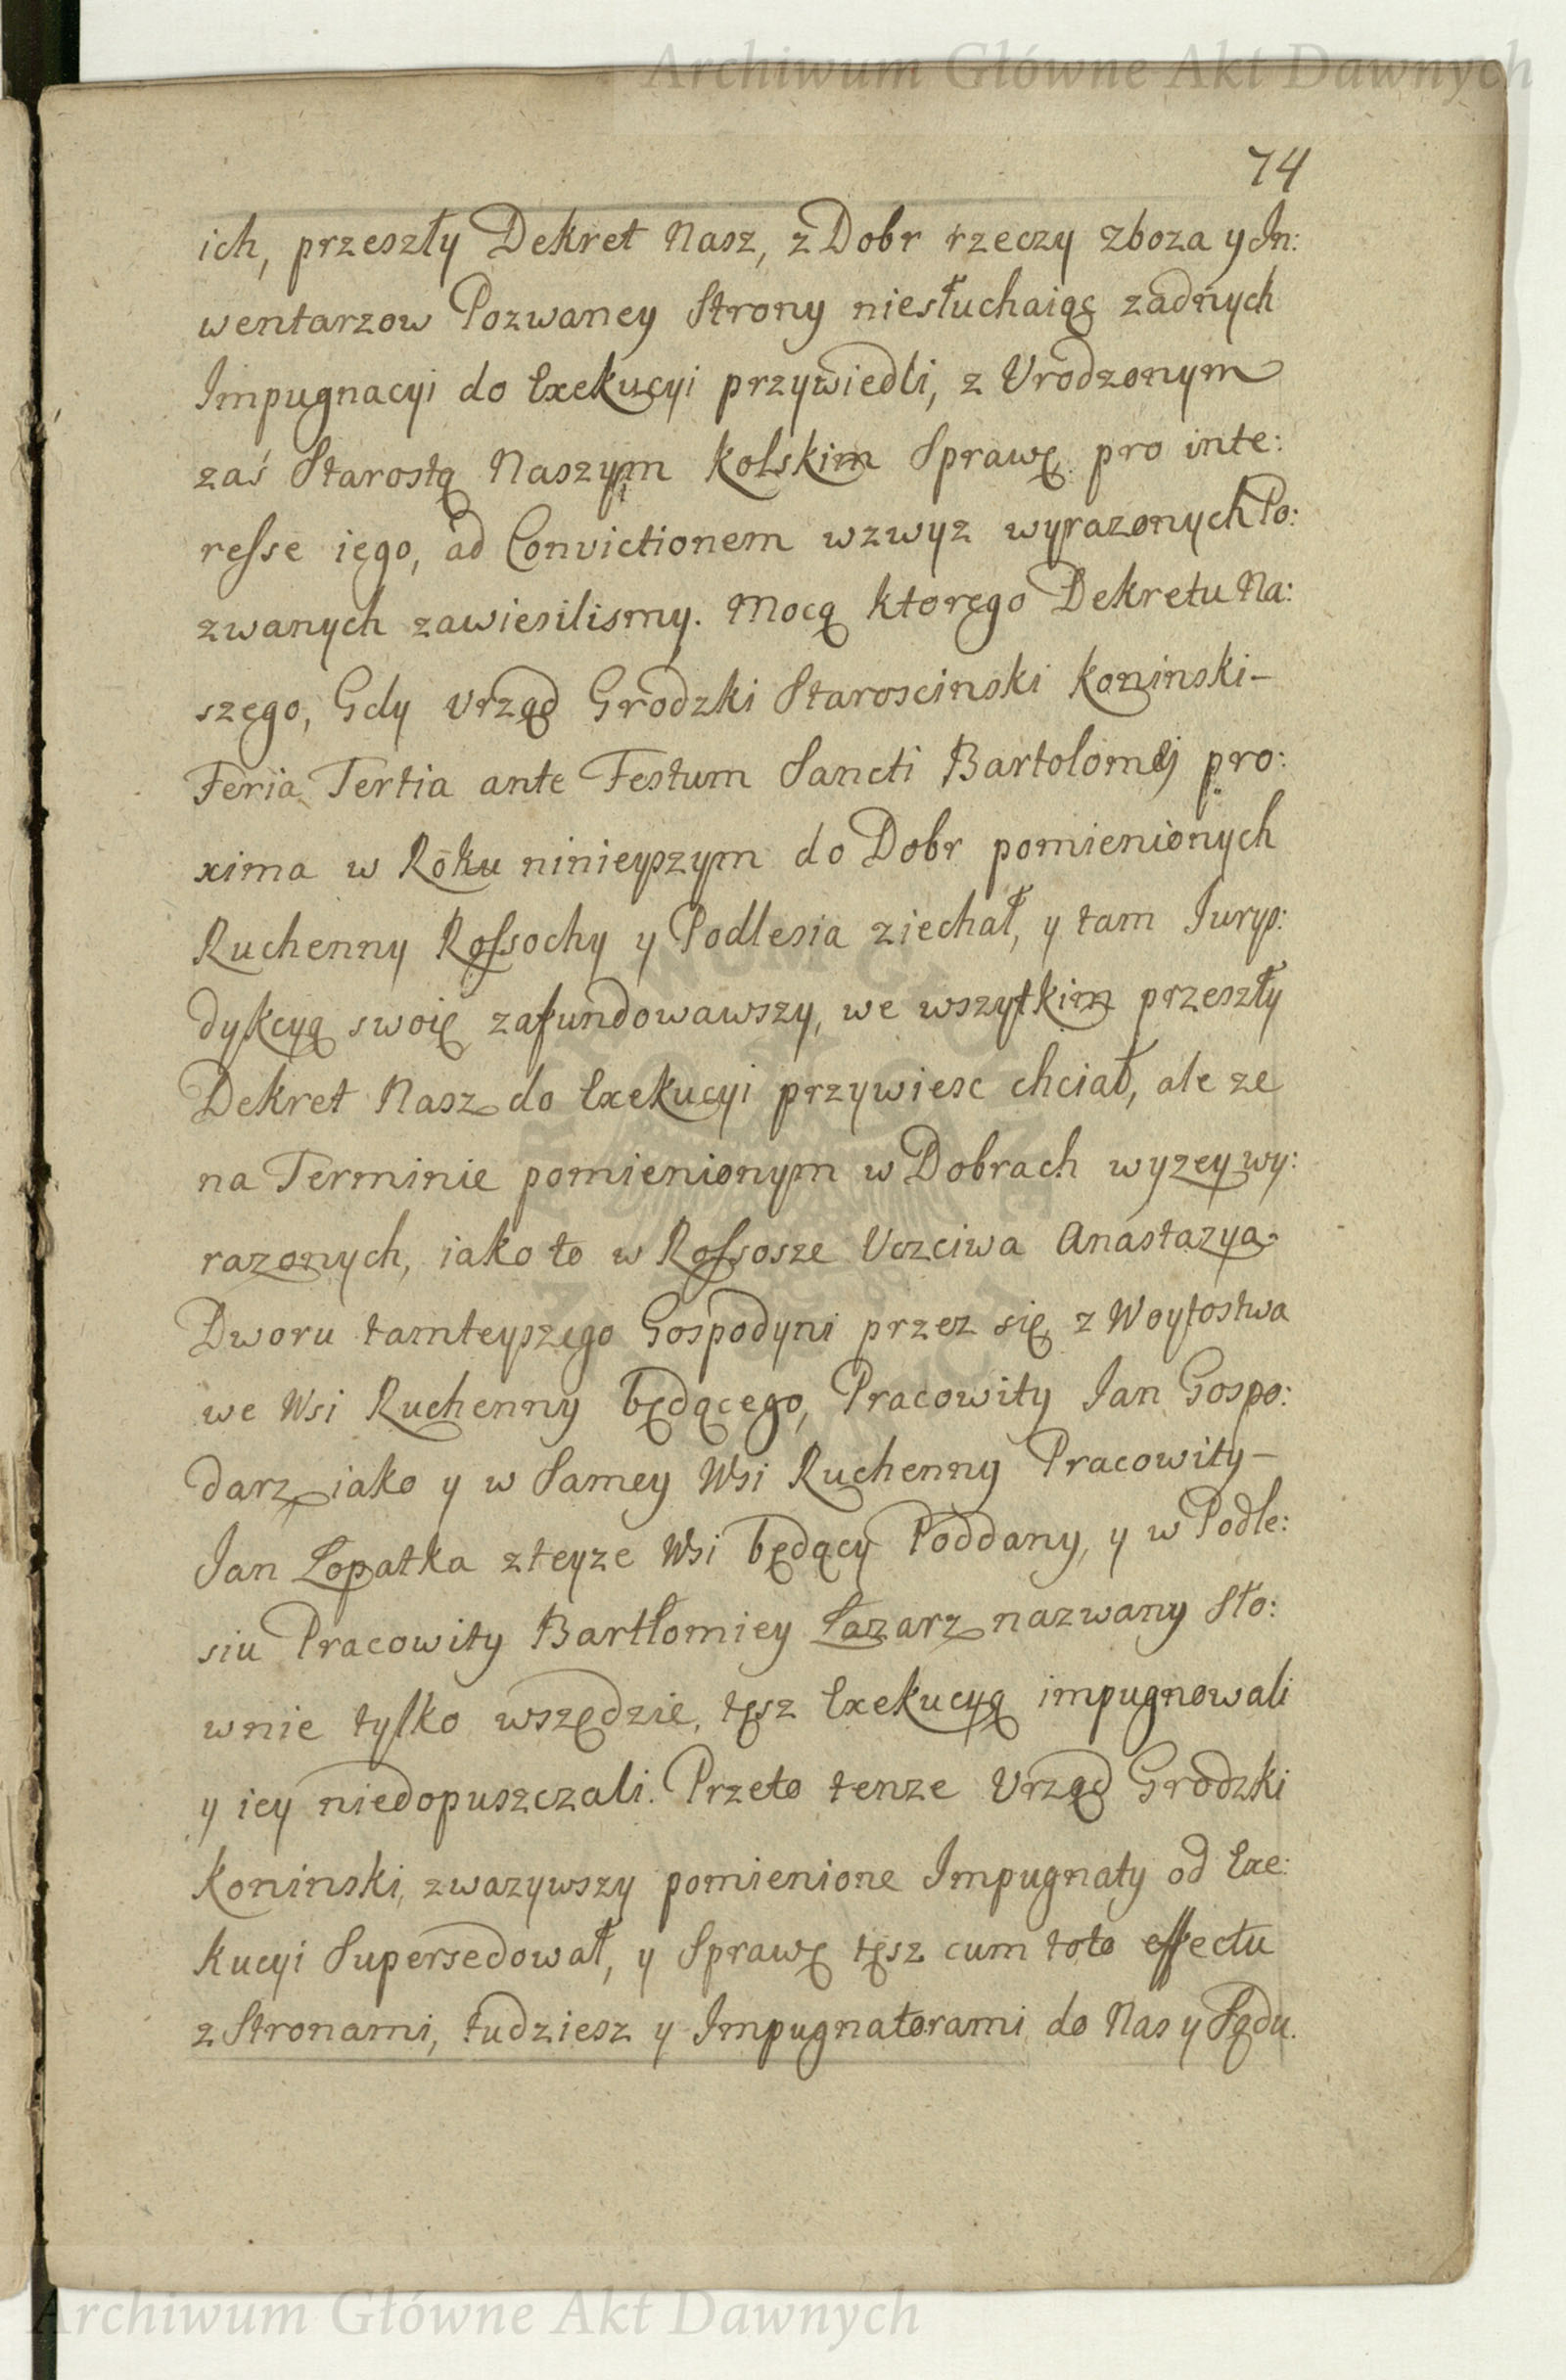 Archiwum Główne Akt Dawnych
74
ich, przeszły Dekret Nasz, z Dobr rzeczy zboza y In:
wentarzow Pozwaney Strony niesłuchaiąc zadnych
Impugnacyi do Exekucyi przywiedli, z Vrodzonym
zaś Starostą Naszym Kolskim Sprawę pro inte:
resse iego, ad Convictionem wzwyz wyrazonych Po:
zwanych zawiesilismy. Mocą ktorego Dekretu Na:
szego, Gdy Vrząd Grodzki Staroscinski Koninski-
Feria Tertia ante Festum Sancti Bartolomej pro:
xima w Roku ninieyszym do Dobr pomienionych
Ruchenny Rossochy y Podlesia ziechał, y tam Iurys:
dykcyą swoię zafundowawszy, we wszytkim przeszły
Dekret Nasz do Exekucyi przywiesc chciał, ale ze
na Terminie pomienionym w Dobrach wyzey wy:
razonych, iako to w Rossosze Vczciwa Anastazya
Dworu tamteyszego Gospodyni przez się z Woytostwa
we Wsi Ruchenny będącego, Pracowity Jan Gospo:
darz iako y w Samey Wsi Ruchenny Pracowity-
Jan Łopatka z teyze Wsi będący Poddany, y w Podle:
siu Pracowity Bartłomiey Łazarz nazwany Sło:
wnie tylko wszędzie, tęsz Exekucyą impugnowali
y iey niedopuszczali. Przeto tenze Vrząd Grodzki
Koninski, zwazywszy pomienione Impugnaty od Exe:
kucyi Supersedował, y Sprawę tęsz cum toto effectu
z Stronami, tudziesz y Impugnatorami do Nas y Sądu.
Archiwum Główne Akt Dawnych